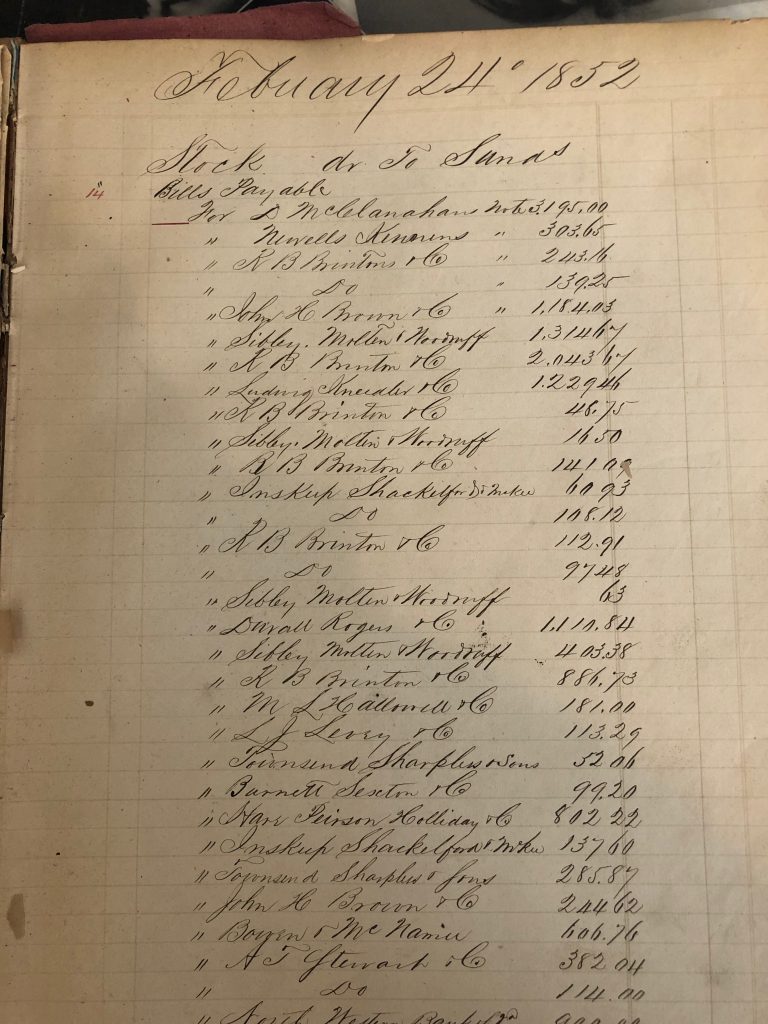 Febuary 24° 1852
Stock dr To Sunds
14 Bills Payable
For D McClanahans Note 3,195.00
" Newells " 303.65
" R B Brintons & C " 243.16
" Do " 139.25
" John H Brown & C " 1,184.03
" Sibley. Molten & Woodruff 1.31467
" R B Brinton & C 2.043 67
" Ludwig Kneedler & C 1.22946
" R B Brinton & C 48.75
" Sibley. Molten & Woodruff 16.50
" R B Brinton & C 141.09
" Inskup Shackelford & McKee 60 93
" Do 108.12
" R B Brinton & C 112.91
" Do 9748
" Sibley Molten & Woodruff 63
" Duvall Rogers & C 1.110.84
" Sibley Molten & Woodruff 403.38
" R B Brinton & C 886.73
" M L Hallowell & C 181.00
" L J Levey & C 113.29
" Townsend Sharpless & Sons 52 06
" Burnett Sexton & C 99.20
" Hare Peirson Holliday & C 802 22
" Inskup Shackelford & McKee 137 60
" Townsend Sharpless & Sons 285.87
" John H Brown & C 244 62
" Bowen & Mc Namee 606.76
" A T Stewart & C 382 04
" Do 114.00
" North Western 900.00